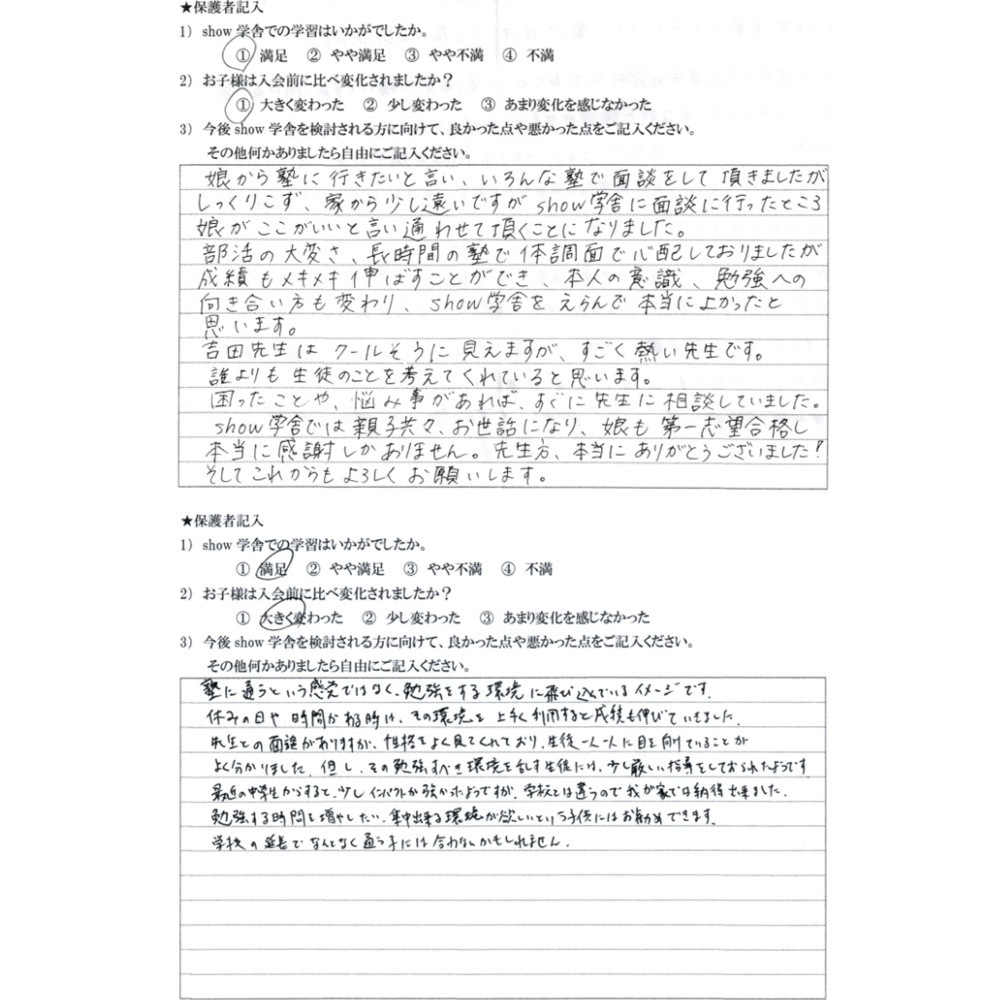 ★保護者記入
1）show 学舎での学習はいかがでしたか。
① 満足 ② やや満足 ③ やや不満 ④ 不満
2）お子様は入会前に比べ変化されましたか？
① 大きく変わった ② 少し変わった ③ あまり変化を感じなかった
3）今後 show 学舎を検討される方に向けて、良かった点や悪かった点をご記入ください。
その他何かありましたら自由にご記入ください。
娘から塾に行きたいと言い、いろんな塾で面談をして頂きましたが
しっくりこず、家から少し遠いですが show学舎に面談に行ったところ
娘がここがいいと言い通わせて頂くことになりました。
部活の大変さ、長時間の塾で体調面で心配しておりましたが
成績もメキメキ伸ばすことができ、本人の意識、勉強への
向き合い方も変わり、show学舎をえらんで本当によかったと
思います。
吉田先生はクールそうに見えますが、すごく熱い先生です。
誰よりも生徒のことを考えてくれていると思います。
困ったことや、悩み事があれば、すぐに先生に相談していました。
show学舎では親子共々、お世話になり、娘も第一志望合格し
本当に感謝しかありません。先生方、本当にありがとうございました！
そしてこれからもよろしくお願いします。
★保護者記入
1）show 学舎での学習はいかがでしたか。
① 満足 ② やや満足 ③ やや不満 ④ 不満
2）お子様は入会前に比べ変化されましたか？
① 大きく変わった ② 少し変わった ③ あまり変化を感じなかった
3）今後 show 学舎を検討される方に向けて、良かった点や悪かった点をご記入ください。
その他何かありましたら自由にご記入ください。
塾に通うという感覚ではなく、勉強をする環境に飛び込んでいるイメージです.
休みの日や時間がある時は、その環境を上手く利用すると成績も伸びていきました.
先生との面談がありますが、性格をよく見てくれており、生徒一人一人に目を向けていることが
よく分かりました. 但し、その勉強すべき環境を乱す生徒には、少し厳しい指導をしておられたようです
最近の中学生からすると、少しインパクトが強かったようですが、学校とは違うので我が家では納得出来ました.
勉強する時間を増やしたい、集中出来る環境が欲しいという子供にはお勧めできます.
学校の延長でなんとなく通う子には合わないかもしれません.